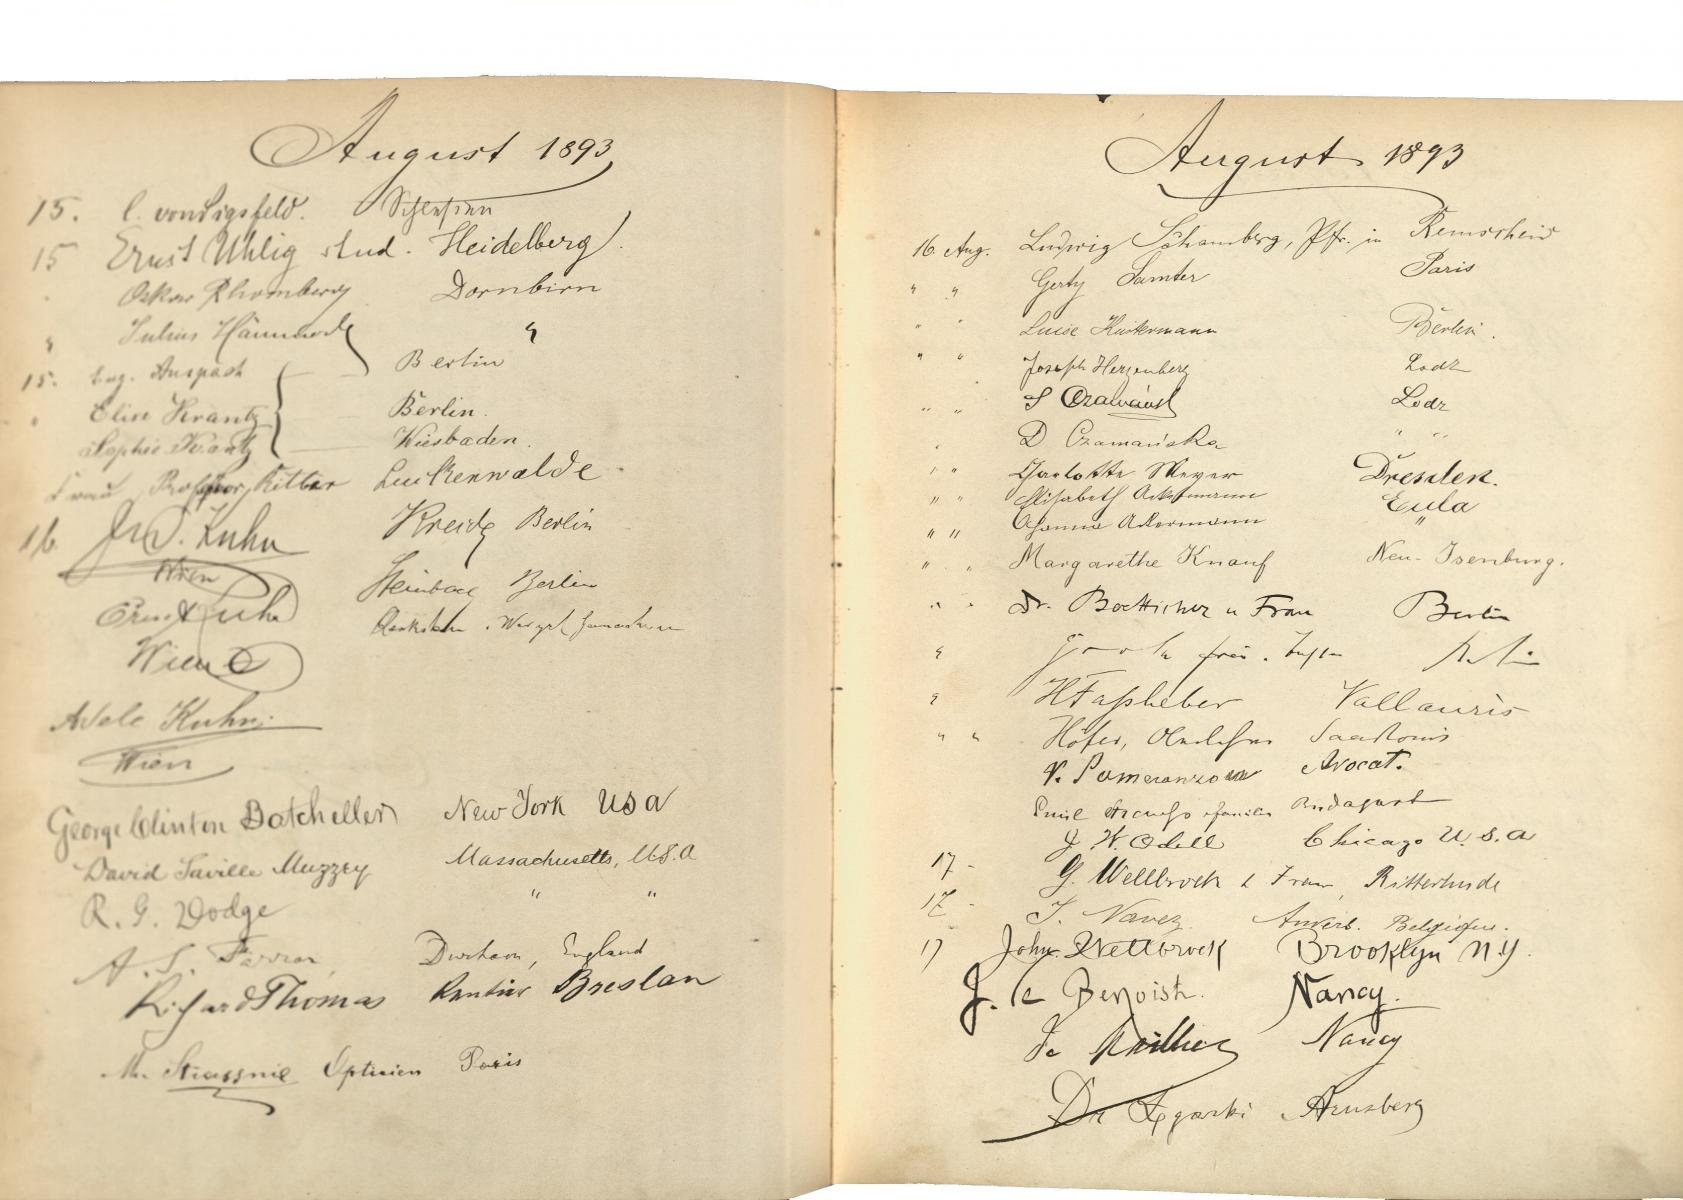 August 1893
15. C. von Sigsfeld.
15 Ernst Uhlig stud. Heidelberg.
Oskar Rhomberg Dornbirn
" Julius Hämmerle "
15. Eug. Anspach Berlin
" Elise Krantz Berlin.
Sophie Krantz Wiesbaden.
Frau Professor Ritter Luckenwalde
16. Kuhn Kreidg Berlin
Wien
Ernst Kuhn Steinbach Berlin
Wien
Adele Kuhn
Wien
George Clinton Batcheller New York USA
David Saville Muzzey Massachusetts, U.S.A
R. G. Dodge " "
A. S. Farrar, Durham, England
Richard Thomas Rentier Breslau
M. Strassnie Opticien Paris
August 1893
16. Aug. Ludwig Schomberg, Pfr. in Remscheid
" " Gerty Samter Paris
" " Luise Berlin.
" " Joseph Herzenberg Lodz
" " S Lodz
" D. Czamańska " "
" " Charlotte Meyer Dresden.
" " Elisabeth Ackermann Eula
" " Johanna Ackermann "
" " Margarethe Knauf Neu-Isenburg.
" " Dr. Boetticher u Frau Berlin
" Berlin
" H Faßheber Vallauris
" " Höfer, Saarlouis
V. Avocat.
Emil Budapest
J. W. Odell Chicago U.S.A
17 - G. Wellbrock & Frau, Ritterhude
17 - J. Navez Anvers. Belgique.
17 John Wellbrock Brooklyn N.Y.
J. le Benoist. Nancy.
Nancy
Dr Arnsberg